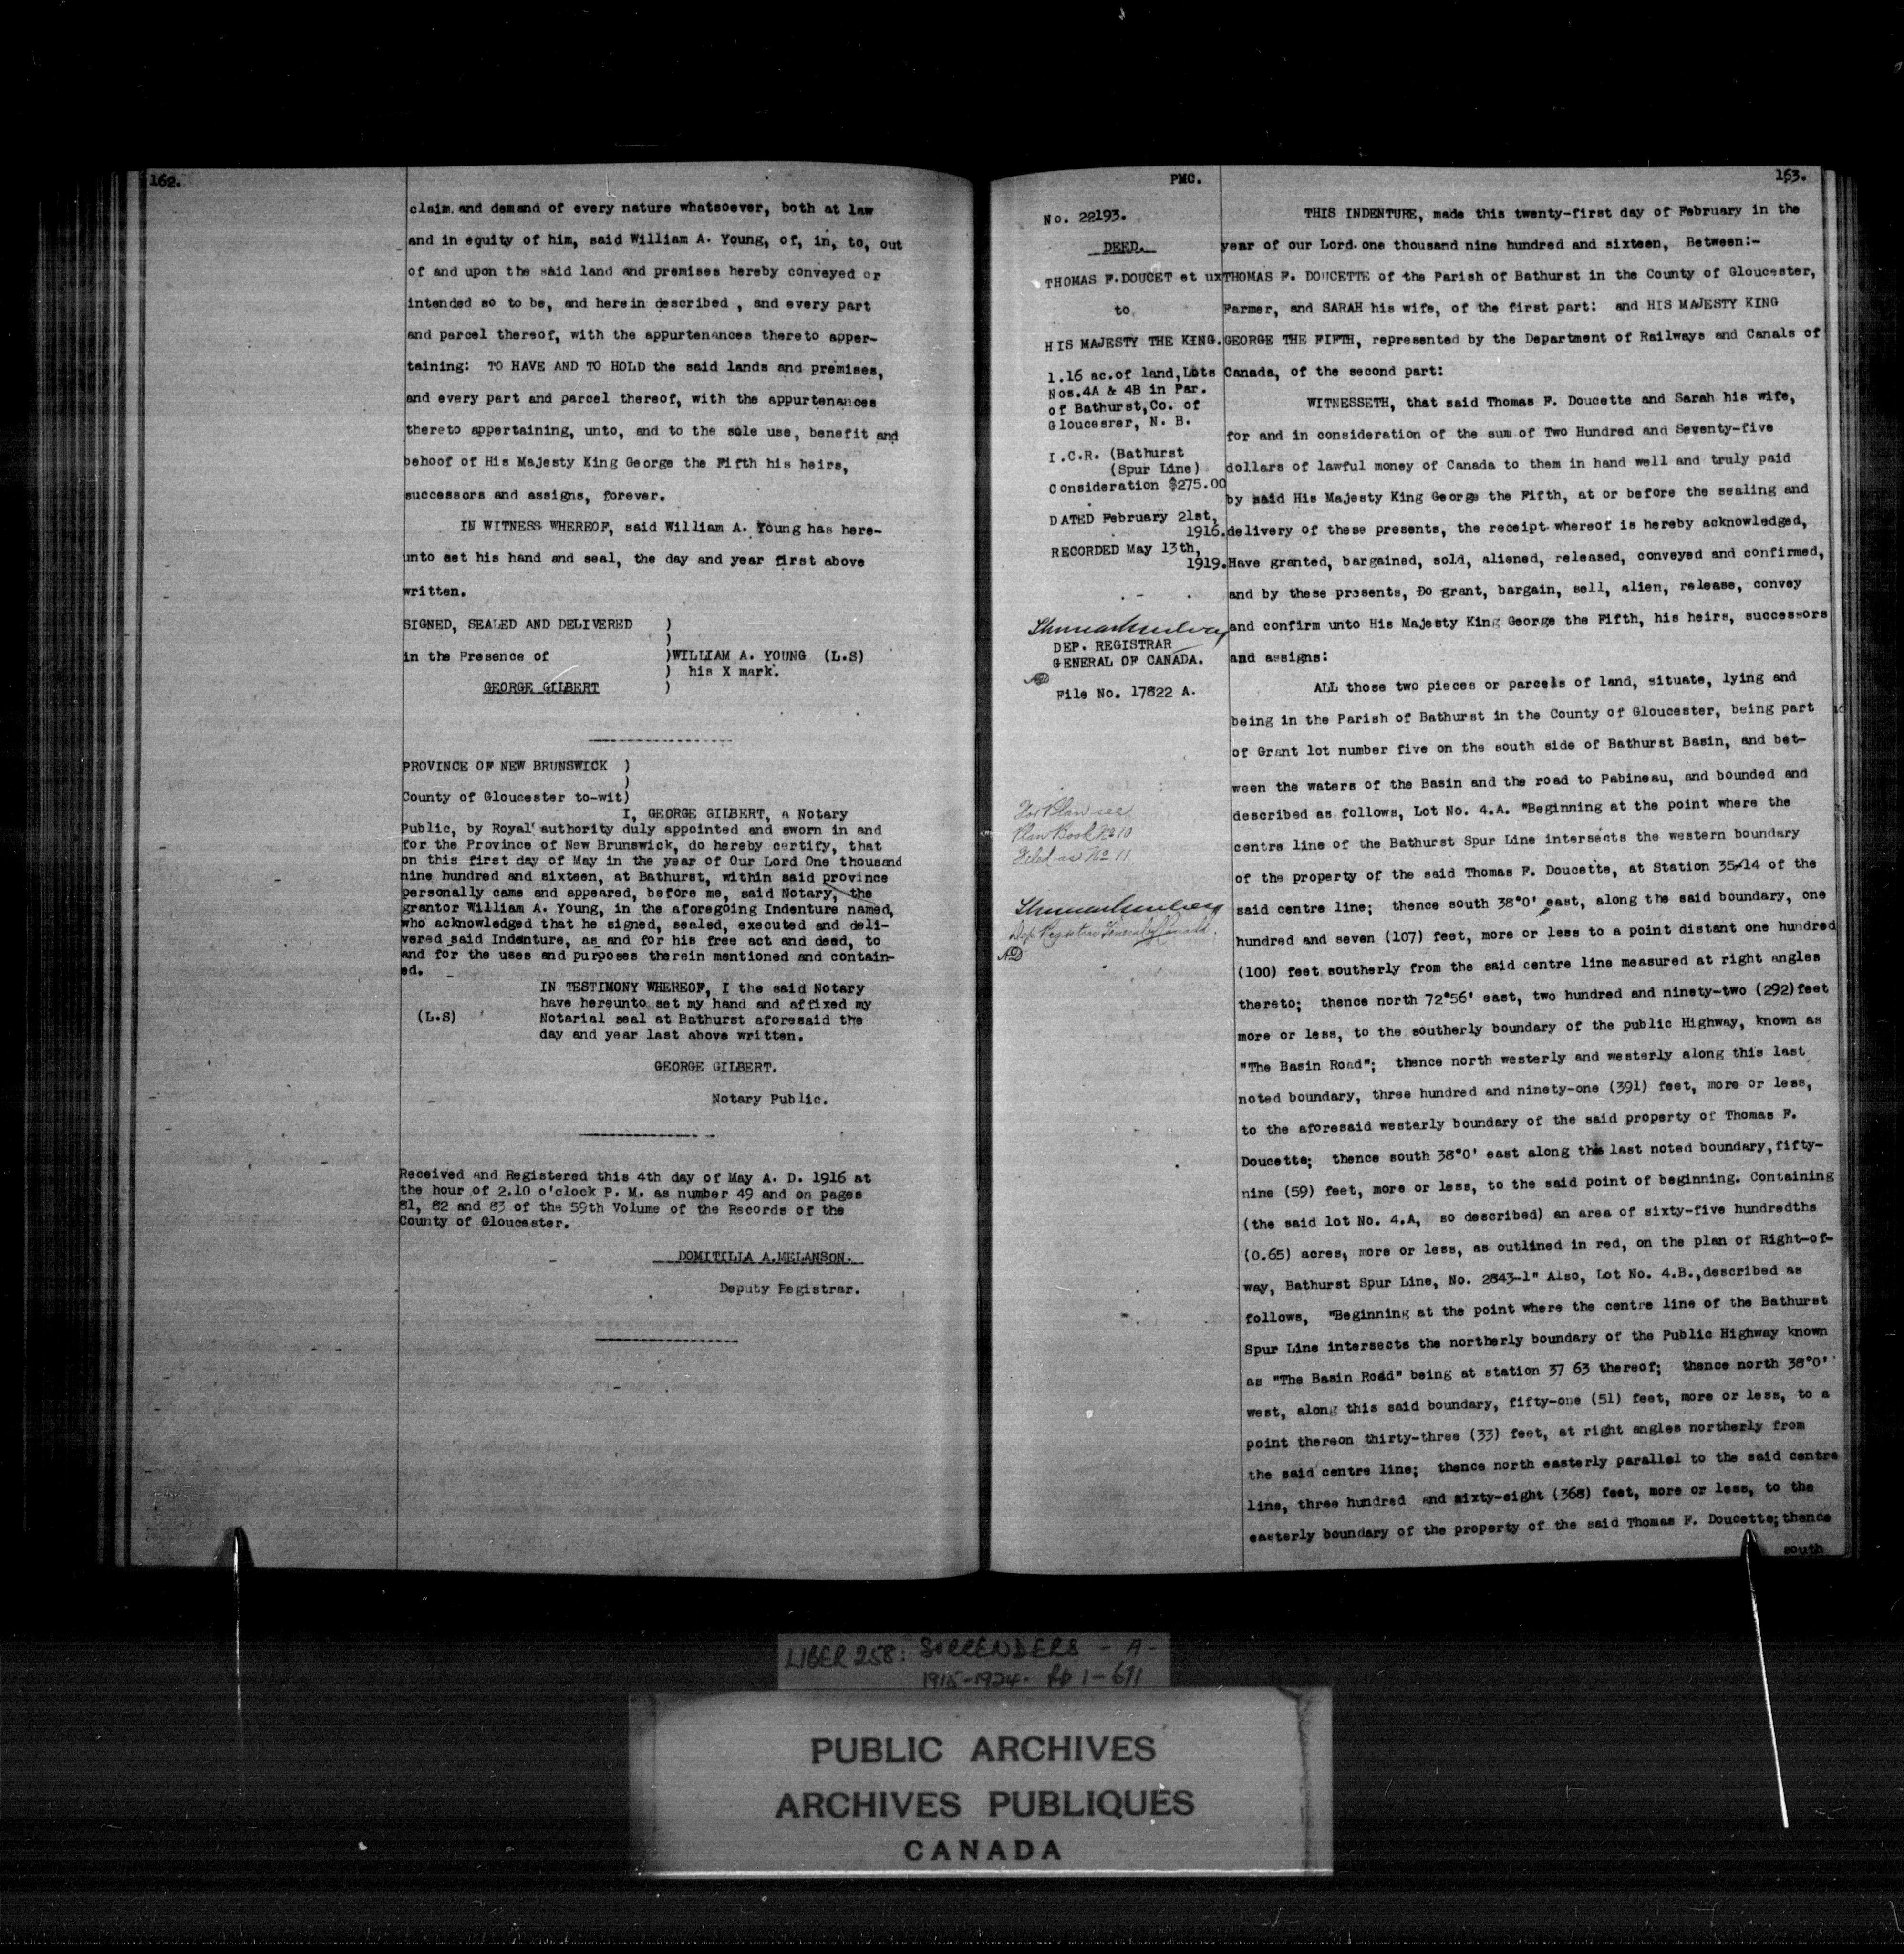 162.
claim and demand of every nature whatsoever, both at law
and in equity of him, said William A. Young, of, in, to, out
of and upon the said land and premises hereby conveyed or
intended so to be, and herein described , and every part
and parcel thereof, with the appurtenances thereto apper-
taining: TO HAVE AND TO HOLD the said lands and premises,
and every part and parcel thereof, with the appurtenances
thereto appertaining, unto, and to the sole use, benefit and
behoof of His Majesty King George the Fifth his heirs,
successors and assigns, forever.
IN WITNESS WHEREOF, said William A. Young has here-
unto set his hand and seal, the day and year first above
written.
SIGNED, SEALED AND DELIVERED )
)
in the Presence of )WILLIAM A. YOUNG (L.S)
) his X mark.
GEORGE GILBERT )
PROVINCE OF NEW BRUNSWICK )
)
County of Gloucester to-wit)
I, GEORGE GILBERT, a Notary
Public, by Royal authority duly appointed and sworn in and
for the Province of New Brunswick, do hereby certify, that
on this first day of May in the year of Our Lord One thousand
nine hundred and sixteen, at Bathurst, within said province
personally came and appeared, before me, said Notary, the
grantor William A. Young, in the aforegoing Indenture named,
who acknowledged that he signed, sealed, executed and deli-
vered said Indenture, as and for his free act and dead, to
and for the uses and purposes therein mentioned and contain-
ed.
IN TESTIMONY WHEREOF, I the said Notary
have hereunto set my hand and affixed my
(L.S) Notarial seal at Bathurst aforesaid the
day and year last above written.
GEORGE GILBERT.
Notary Public.
Received and Registered this 4th day of May A. D. 1916 at
the hour of 2.10 o'clock P. M. as number 49 and on pages
81, 82 and 83 of the 59th Volume of the Records of the
County of Gloucester.
DOMITILLA A.MELANSON.
Deputy Registrar.
PMC.
163.
No. 22193.
DEED.
THOMAS F.DOUCET et ux
to
HIS MAJESTY THE KING.
1.16 ac.of land,Lots
Nos.4A & 4B in Par.
of Bathurst,Co. of
Gloucesrer, N. B.
I.C.R. (Bathurst
(Spur Line)
Consideration $275.00
DATED February 21st,
1916.
RECORDED May 13th,
1919.
DEP. REGISTRAR
GENERAL OF CANADA.
File No. 17822 A.
For Plan see
Plan Book No 10
Filed as No 11
Dep. Registrar General of Canada.
THIS INDENTURE, made this twenty-first day of February in the
year of our Lord one thousand nine hundred and sixteen, Between:-
THOMAS F. DOUCETTE of the Parish of Bathurst in the County of Gloucester,
Farmer, and SARAH his wife, of the first part: and HIS MAJESTY KING
GEORGE THE FIFTH, represented by the Department of Railways and Canals of
Canada, of the second part:
WITNESSETH, that said Thomas F. Doucette and Sarah his wife,
for and in consideration of the sum of Two Hundred and Seventy-five
dollars of lawful money of Canada to them in hand well and truly paid
by said His Majesty King George the Fifth, at or before the sealing and
delivery of these presents, the receipt whereof is hereby acknowledged,
Have granted, bargained, sold, aliened, released, conveyed and confirmed,
and by these presents, Do grant, bargain, sell, alien, release, convey
and confirm unto His Majesty King George the Fifth, his heirs, successors
and assigns:
ALL those two pieces or parcels of land, situate, lying and
being in the Parish of Bathurst in the County of Gloucester, being part
of Grant lot number five on the south side of Bathurst Basin, and bet-
ween the waters of the Basin and the road to Pabineau, and bounded and
described as follows, Lot No. 4.A. "Beginning at the point where the
centre line of the Bathurst Spur Line intersects the western boundary
of the property of the said Thomas F. Doucette, at Station 35+14 of the
said centre line; thence south 38°0' east, along the said boundary, one
hundred and seven (107) feet, more or less to a point distant one hundred
(100) feet southerly from the said centre line measured at right angles
thereto; thence north 72°56' east, two hundred and ninety-two (292)feet
more or less, to the southerly boundary of the public Highway, known as
"The Basin Road"; thence north westerly and westerly along this last
noted boundary, three hundred and ninety-one (391) feet, more or less,
to the aforesaid westerly boundary of the said property of Thomas F.
Doucette; thence south 38°0' east along this last noted boundary, fifty-
nine (59) feet, more or less, to the said point of beginning. Containing
(the said lot No. 4.A, so described) an area of sixty-five hundredths
(0.65) acres, more or less, as outlined in red, on the plan of Right-of-
way, Bathurst Spur Line, No. 2843-1" Also, Lot No. 4.B.,described as
follows, "Beginning at the point where the centre line of the Bathurst
Spur Line intersects the northerly boundary of the Public Highway known
as "The Basin Road" being at station 37 63 thereof; thence north 38°0'
west, along this said boundary, fifty-one (51) feet, more or less, to a
point thereon thirty-three (33) feet, at right angles northerly from
the said centre line; thence north easterly parallel to the said centre
line, three hundred and sixty-eight (368) feet, more or less, to the
easterly boundary of the property of the said Thomas F. Doucette;thence
south
LIBER 258: SURRENDERS - A -
1915-1924. pp 1-671
PUBLIC ARCHIVES
ARCHIVES PUBLIQUES
CANADA